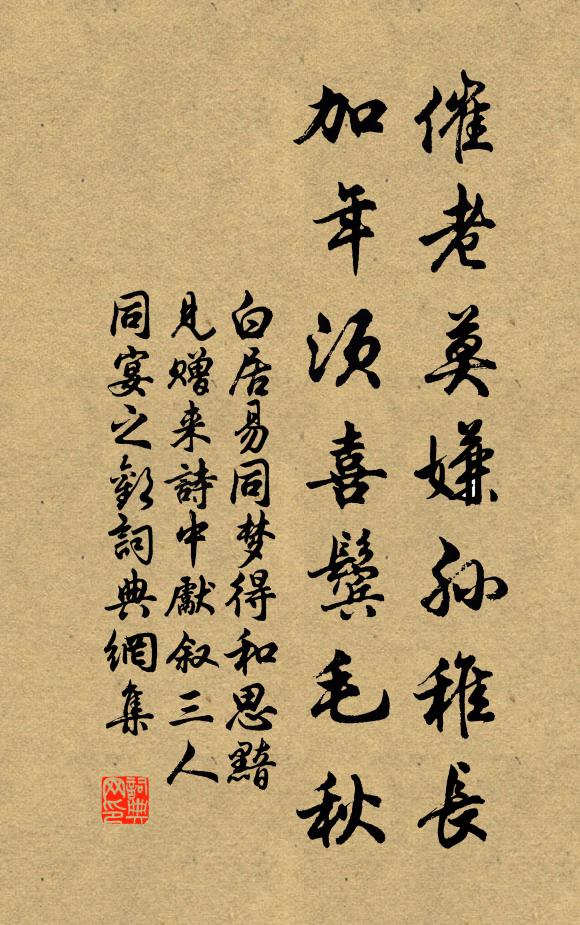 催老莫嫌孙稚長
加年须喜鬓毛秋
白居易同梦得和思黯
見赠来詩中獻叙三人
同宴之歡詞典網集
詞典网印